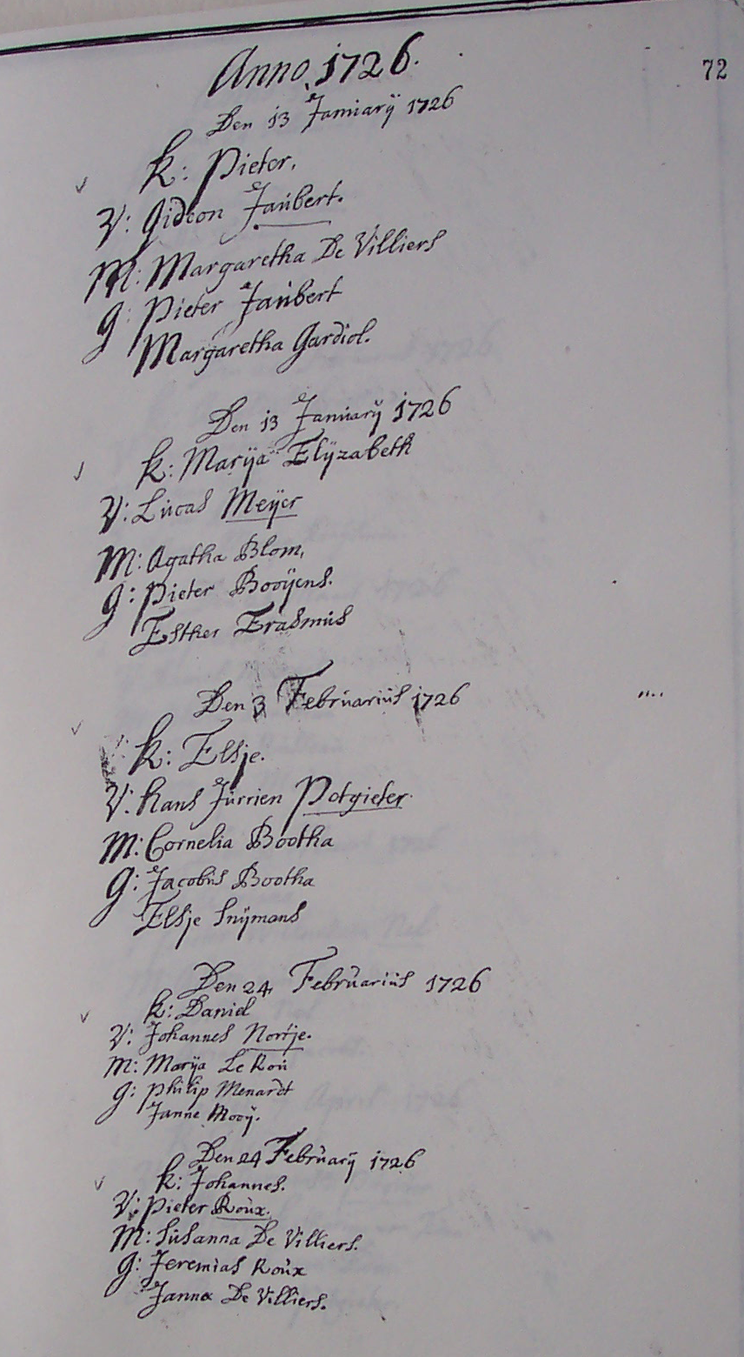 72
Anno, 1726.
Den 13 Januarÿ 1726
K: Pieter,
V: Gideon Jaubert.
M: Margaretha De Villiers
G: Pieter Jaubert
Margaretha Gardiol.
Den 13 Januarÿ 1726
K: Marÿa Elÿzabeth
V: Lucas Meÿer
M: Agatha Blom,
G: Pieter Booÿens.
Esther Erasmus
Den 3 Februarius 1726
K: Elsje.
V: Hans Jurrien Potgieter.
M: Cornelia Bootha
G: Jacobus Bootha
Elsje Snÿmans
Den 24 Februarius 1726
K: Daniel
V: Johannes Nortje.
M: Marÿa Le Rou
G: Philip Menardt
Janne Mooÿ.
Den 24 Februarÿ 1726
K: Johannes.
V: Pieter Roux.
M: Susanna De Villiers.
G: Jeremias Roux
Janna De Villiers.